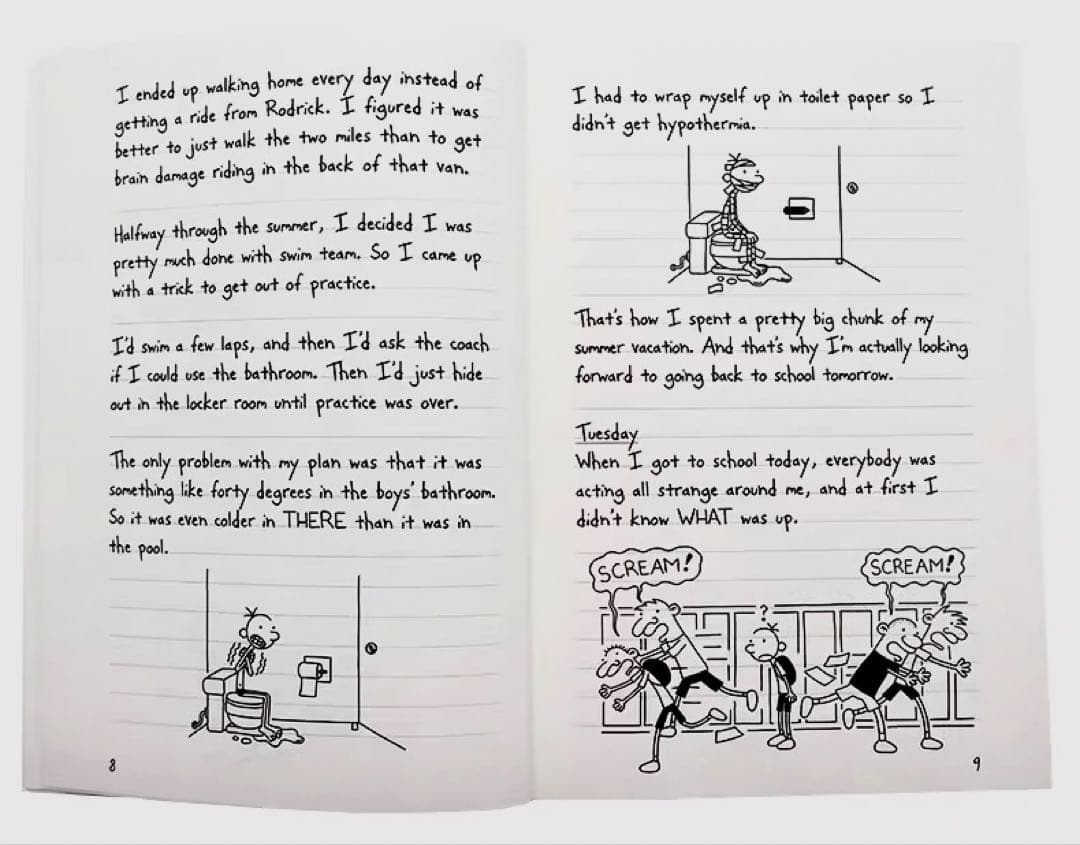 I ended up walking home every day instead of
getting a ride from Rodrick. I figured it was
better to just walk the two miles than to get
brain damage riding in the back of that van.
Halfway through the summer, I decided I was
pretty much done with swim team. So I came up
with a trick to get out of practice.
I'd swim a few laps, and then I'd ask the coach
if I could use the bathroom. Then I'd just hide
out in the locker room until practice was over.
The only problem with my plan was that it was
something like forty degrees in the boys' bathroom.
So it was even colder in THERE than it was in
the pool.
8
I had to wrap myself up in toilet paper so I
didn't get hypothermia.
That's how I spent a pretty big chunk of my
summer vacation. And that's why I'm actually looking
forward to going back to school tomorrow.
Tuesday
When I got to school today, everybody was
acting all strange around me, and at first I
didn't know WHAT was up.
SCREAM!
SCREAM!
?
9